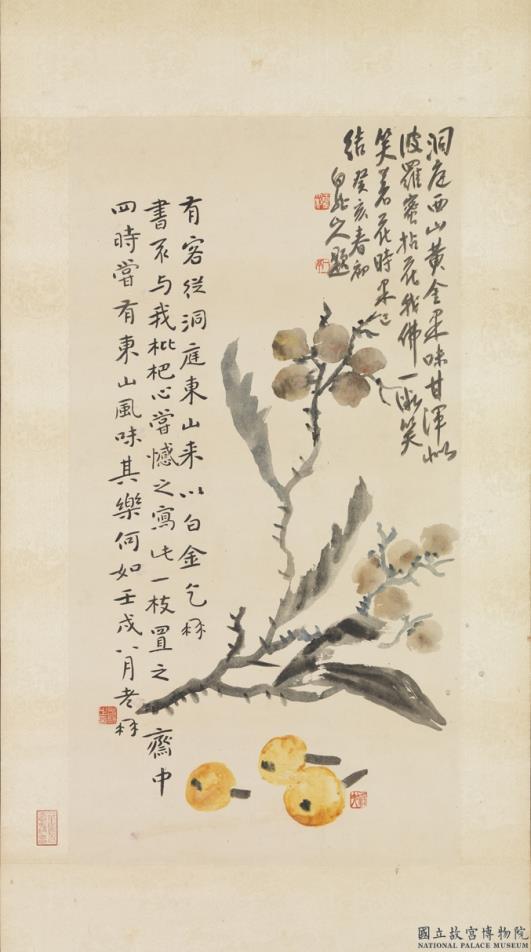 洞庭西山黃金果味甘渾似
波羅蜜拈花我佛一微笑
笑著花時果已
結 癸亥春初
白龍山人題
有客從洞庭東山來以白金乞
書不與我枇杷心嘗憾之寫此一枝置之小齋中
四時嘗有東山風味其樂何如壬戌八月老
國立故宮博物院
NATIONAL PALACE MUSEUM